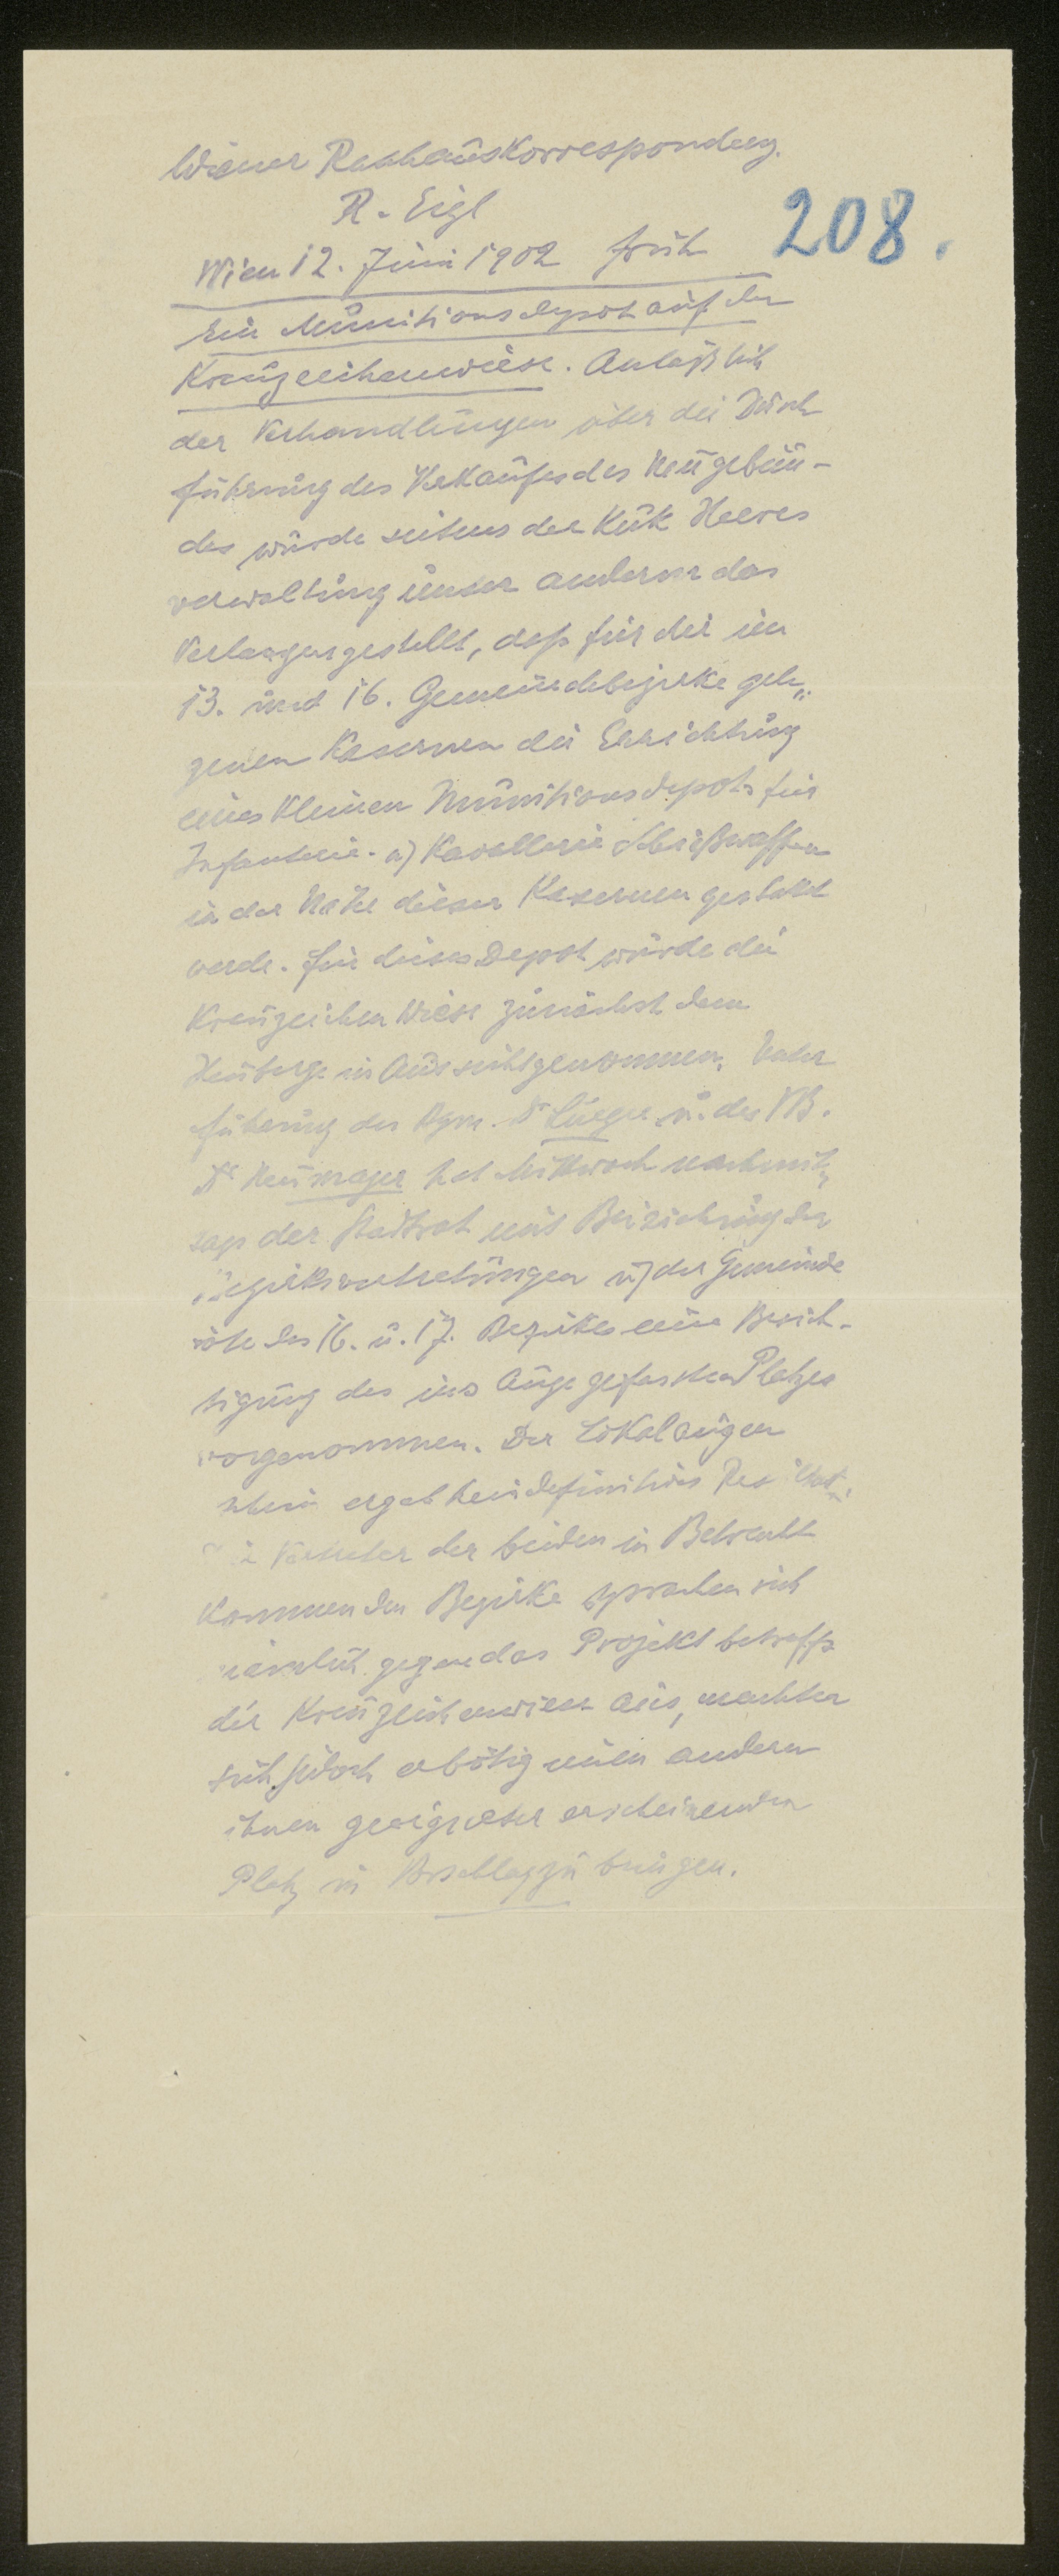 Wiener Rathauskorrespondenz.
R. Eigl
208.
Wien 12. Juni 1902 früh
Ein Munitionsdepot auf der
Kreuzeichenwiese. Anläßlich
der Verhandlungen über die Durch
führung des Verkaufes des Neugebäu-
des wurde seitens der KuK Heeres
verwaltung unter anderem das
Verlangen gestellt, daß für die im
13. und 16. Gemeindebezirke gele„
genen Kasernen die Errichtung
eines kleinen Munitionsdepots für
Infanterie- u) Kavallerie Schießwaffen
in der Nähe dieser Kasernen gestattet
werde. Für dieses Depot wurde die
Kreuzeichen Wiese zunächst dem
Heuberge in Aussicht genommen. Unter
führung des Bgm. Dr Lueger u. des VB.
Dr Neumayer hat Mittwoch nachmit„
tags der Stadtrat mit Beiziehung der
Bezirksvertretungen u) der Gemeinde
räte des 16. u. 17. Bezirkes eine Besich-
tigung des ins Auge gefassten Platzes
vorgenommen. Der Lokalaugen
schein ergab kein definitives Resultat.
Die Vertreter der beiden in Betracht
kommenden Bezirke sprachen sich
nämlich gegen das Projekt betreffs
der Kreuzeichenwiese aus, machten
sich jedoch erbötig einen andern
ihnen geeigneter erscheinenden
Platz in Vorschlag zu bringen.